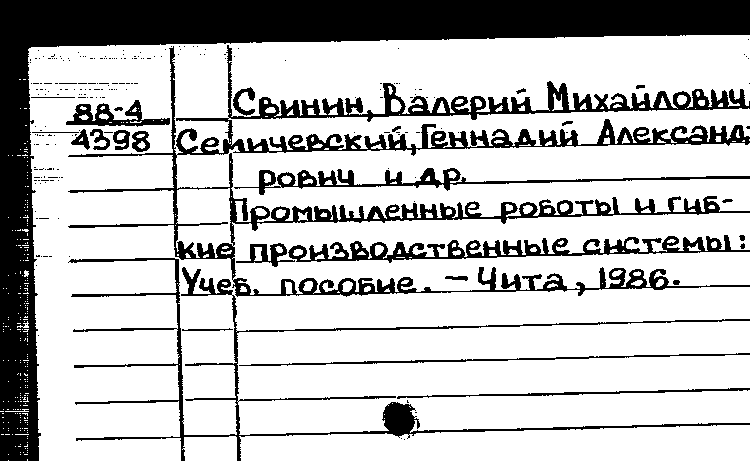 88-4
4398
Свинин, Валерий Михайлович,
Семичевский, Геннадий Александ-
рович и др.
Промышленные роботы и гиб-
кие производственные системы:
Учеб. пособие. — Чита, 1986.